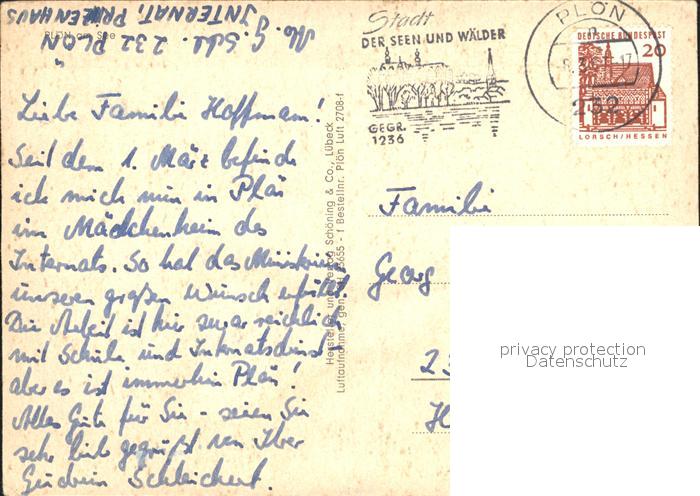 Abs. G. Schl. 232 PLÖN
INTERNAT, PRINZENHAUS
PLÖN am See
Liebe Familie Hoffmann!
Seit dem 1. März befinde
ich mich nun in Plön
im Mädchenheim des
Internats. So hat das Ministerium
unseren großen Wunsch erfüllt!
Die Arbeit ist hier zwar reichlich
mit Schule und Internatsdienst
aber es ist immerhin Plön!
Alles Gute für Sie - seien Sie
sehr lieb gegrüßt von Ihrer
Gudrun Schleichert.
Hersteller und Verlag Schöning & Co., Lübeck
Bestellnr. Plön Luft 2708-f
Stadt
DER SEEN UND WÄLDER
GEGR.
1236
PLÖN
232
DEUTSCHE BUNDESPOST
20
LORSCH/HESSEN
Familie
Georg
2
privacy protection
Datenschutz